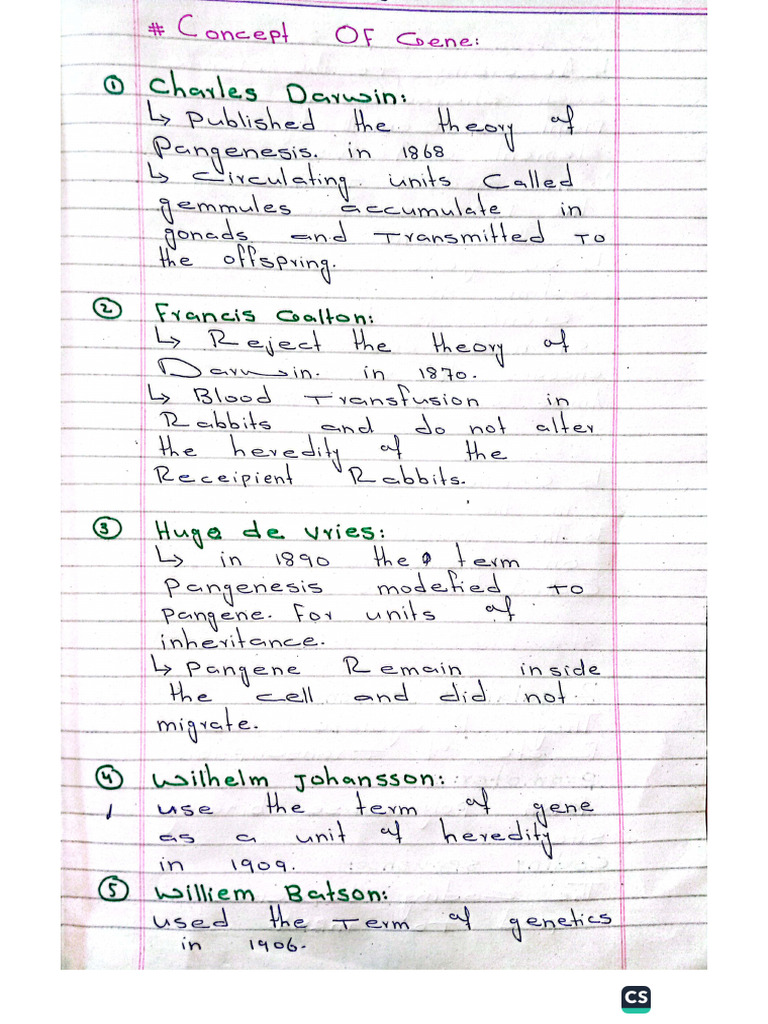 # Concept OF Gene:
① Charles Darwin:
↳ Published the theory of
Pangenesis. in 1868
↳ Circulating units Called
gemmules accumulate in
gonads and Transmitted TO
the offspring.
② Francis Galton:
↳ Reject the theory of
Darwin. in 1870.
↳ Blood Transfusion in
Rabbits and do not alter
the heredity of the
Receipient Rabbits.
③ Hugo de Vries:
↳ in 1890 the term
Pangenesis modefied TO
pangene. For units of
inheritance.
↳ Pangene Remain inside
the cell and did not
migrate.
④ Wilhelm Johansson:
use the term of gene
as a unit of heredity
in 1909.
⑤ Williem Batson:
used the Term of genetics
in 1906.
CS